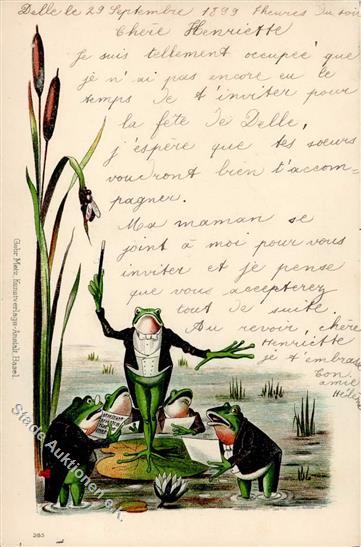 Delle le 29 Septembre 1899 heures du soir
Chère Henriette
Je suis tellement occupée que
je n'ai pas encore eu le
temps de t'inviter pour
la fête de Delle,
j'éspère que tes soeurs
voudront bien t'accom-
pagner.
Ma maman se
joint à moi pour vous
inviter et je pense
que vous accepterez
tout de suite.
Au revoir, chère
Henriette
je t'embrasse
Ton
amie
Gebr. Metz, Kunstverlags-Anstalt, Basel.
Stade Auktionen e.K.
285